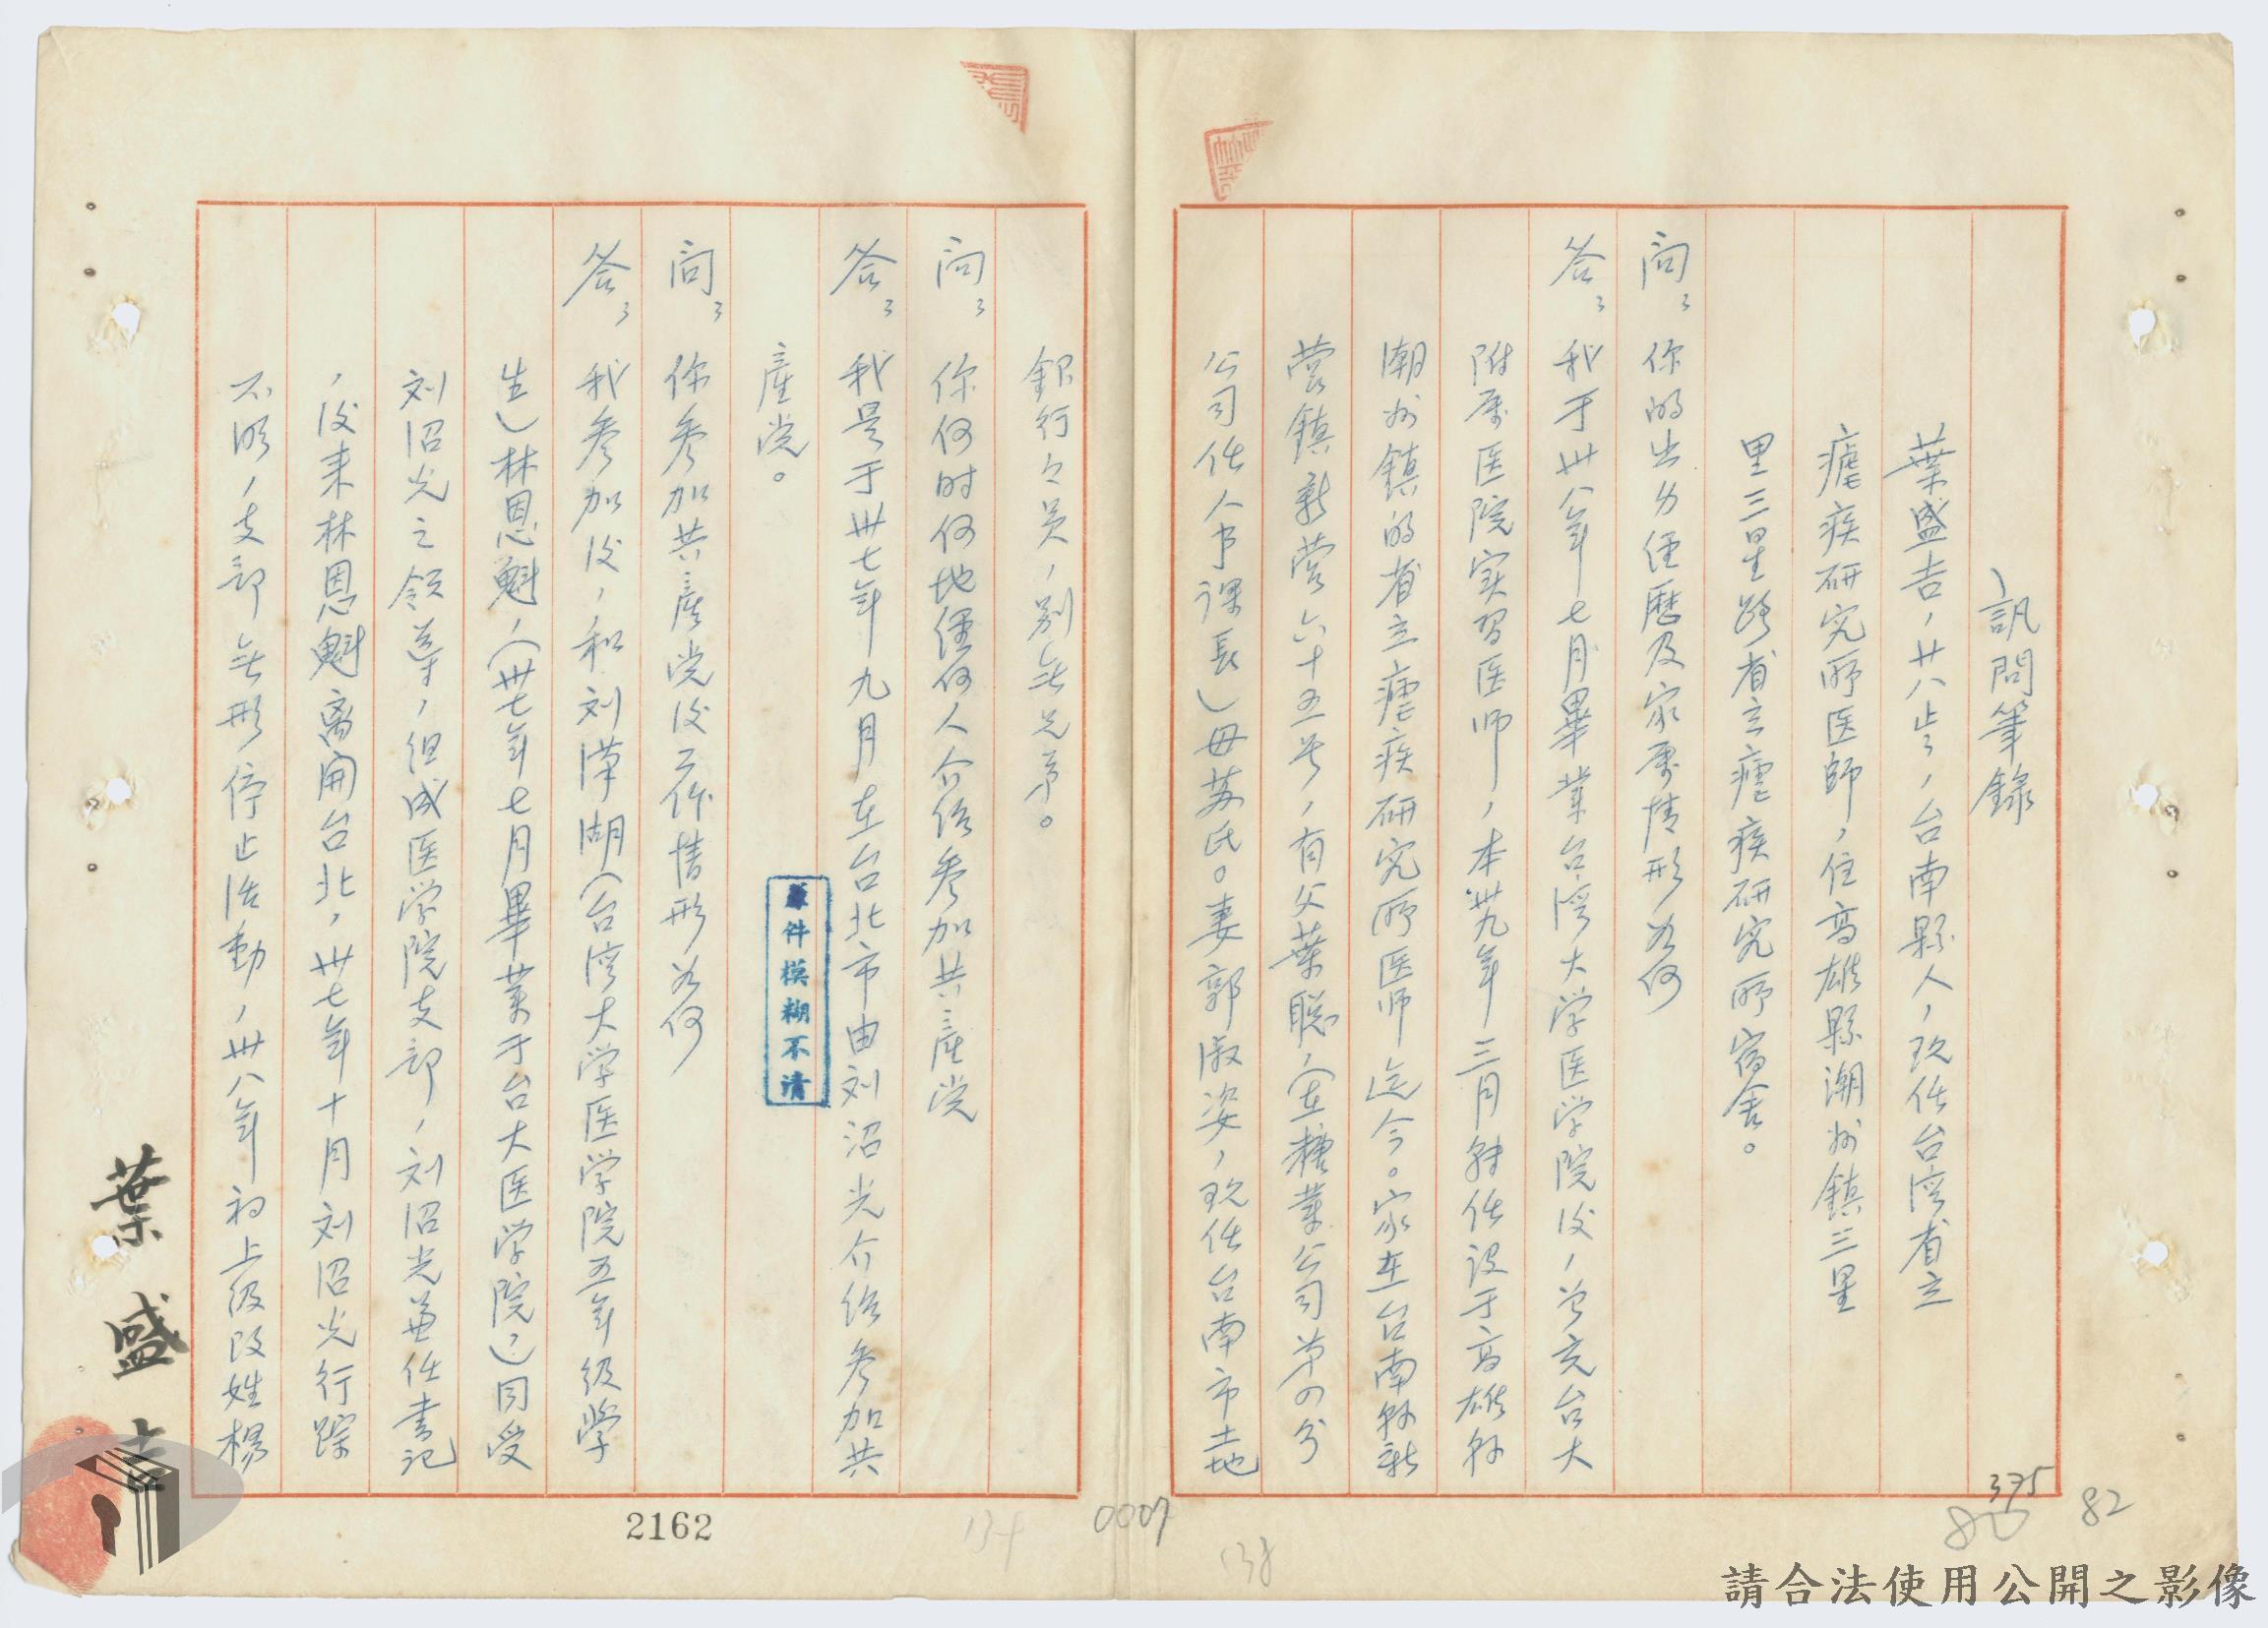 訊問筆錄
葉盛吉，廿八歲，台南縣人，現任台湾省立
瘧疾研究所医師，住高雄縣潮州鎮三星
里三星路省立瘧疾研究所宿舍。
问：你的出身经歷及家屬情形为何
答：我于卅八年七月畢業台湾大学医学院后，曾充台大
附屬医院实習医师，本卅九年三月轉任设于高雄县
潮州鎮的省立瘧疾研究所医师迄今。家在台南县新
营鎮新营六十五号，有父葉聪，（在糖業公司第四分
公司任人事課長）母苏氏。妻郭淑姿，现任台南市土地
銀行行员，别無兄弟。
问：你何时何地经何人介绍参加共產党
答：我是于卅七年九月在台北市由刘沼光介绍参加共
產党。
问：你参加共產党后工作情形为何
答：我参加后，和刘漢湖（台湾大学医学院五年级学
生）林恩魁，（卅七年七月畢業于台大医学院）同受
刘沼光之领導，组成医学院支部，刘沼光兼任書记
，後来林恩魁离開台北，卅七年十月刘沼光行踪
不明，支部無形停止活動，卅八年初上级改姓楊
葉盛吉
原件模糊不清
2162
0007
134
138
375
80
82
請合法使用公開之影像